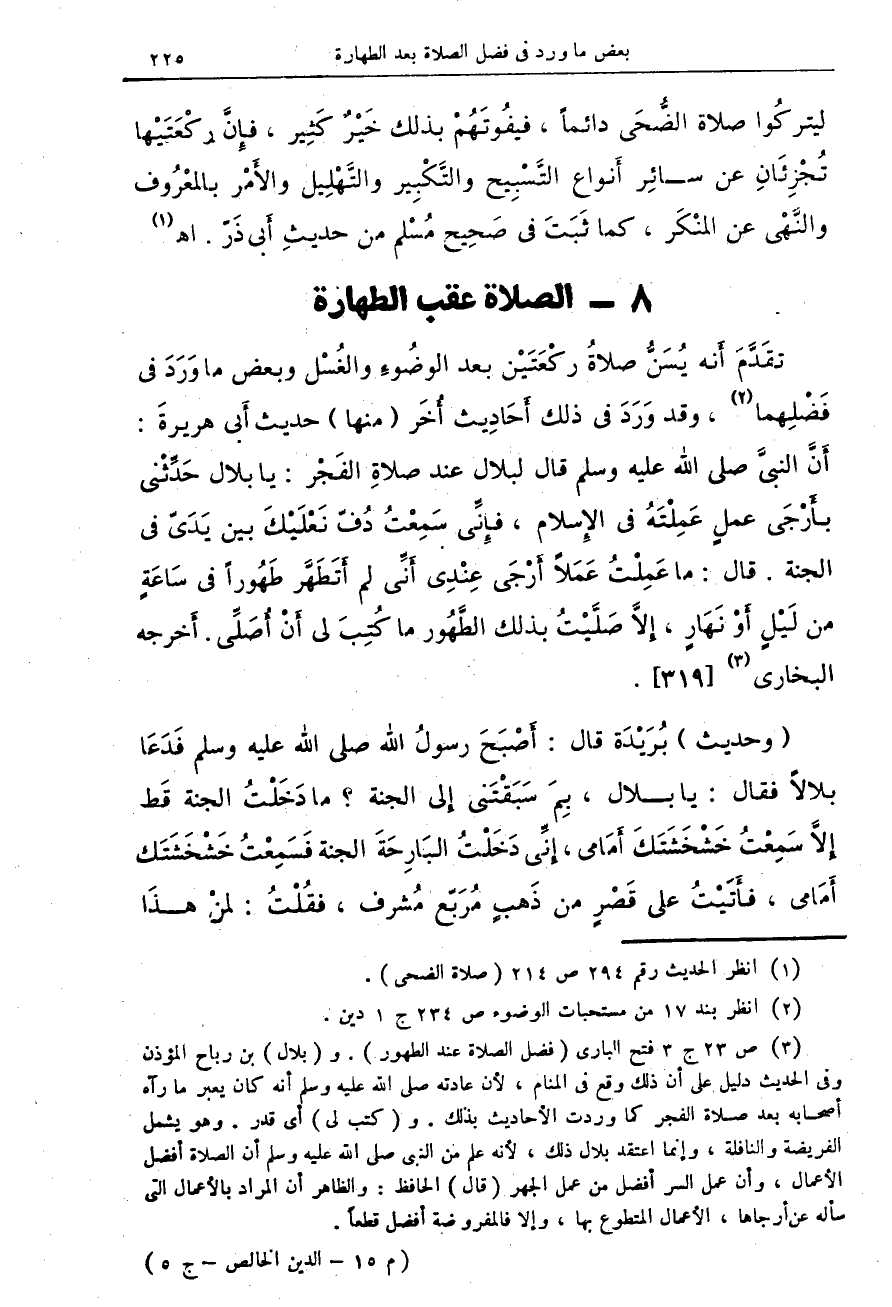 بعض ما ورد فى فضل الصلاة بعد الطهارة ٢٢٥
ليتركُوا صلاة الضُّحَى دائماً ، فيفُوتَهُمْ بذلك خَيْرٌ كَثِير ، فَإِنَّ رَكْعَتَيْها
تُجْزِئَانِ عن سائِر أَنواع التَّسْبِيح والتَّكْبِير والتَّهْلِيل والأَمْر بالمَعْرُوف
والنَّهْى عن المنْكَر ، كما ثَبَتَ فى صَحِيح مُسْلم من حديثِ أَبى ذَرّ . اه (١)
٨ – الصلاة عقب الطهارة
تقَدَّمَ أَنه يُسَنُّ صلاةُ ركْعَتَيْن بعد الوضُوءِ والغُسْل وبعض ماوَرَدَ فى
فَضْلِهما(٢) ، وقد وَرَدَ فى ذلك أَحَادِيث أُخَر ( منها ) حديث أَبى هريرةَ :
أَنَّ النبيَّ صلى الله عليه وسلم قال لبلال عند صلاةِ الفَجْر : يا بلال حَدِّثْنى
بأَرْجَى عملٍ عَمِلْتَهُ فى الإِسلام ، فإِنِّى سَمِعْتُ دُفّ نَعْلَيْكَ بين يَدَىّ فى
الجنة . قال : ما عَمِلْتُ عَمَلاً أَرْجَى عِنْدِى أَنِّى لم أَتَطَهَّر طَهُوراً فى سَاعَةٍ
من لَيْلٍ أَوْ نَهَارٍ ، إِلاَّ صَلَّيْتُ بذلك الطَّهُور ما كُتِبَ لى أَنْ أُصَلِّى . أَخرجه
البخارى(٣) [٣١٩] .
( وحديث ) بُرَيْدَة قال : أَصْبَحَ رسولُ الله صلى الله عليه وسلم فَدَعَا
بلالاً فقال : يا بلال ، بِمَ سَبَقْتَنى إلى الجنة ؟ ما دَخَلْتُ الجنة قَط
إِلاَّ سَمِعْتُ خَشْخَشَتَكَ أَمَامى ، إِنِّى دَخَلْتُ البَارِحَةَ الجنة فَسَمِعْتُ خَشْخَشَتَك
أَمَامى ، فأَتَيْتُ على قَصْرٍ من ذَهبٍ مُرَبَّع مُشرف ، فقُلْتُ : لمنْ هذَا
(١) انظر الحديث رقم ٢٩٤ ص ٢١٤ ( صلاة الضحى ) .
(٢) انظر بند ١٧ من مستحبات الوضوء ص ٢٣٤ ج ١ دين .
(٣) ص ٢٣ ج ٣ فتح البارى ( فضل الصلاة عند الطهور ) . و ( بلال ) بن رباح المؤذن
وفى الحديث دليل على أن ذلك وقع فى المنام ، لأن عادته صلى الله عليه وسلم أنه كان يعبر ما رآه
أصحابه بعد صلاة الفجر كما وردت الأحاديث بذلك . و ( كتب لى ) أى قدر . وهو يشمل
الفريضة والنافلة ، وإنما اعتقد بلال ذلك ، لأنه علم من النبى صلى الله عليه وسلم أن الصلاة أفضل
الأعمال ، وأن عمل السر أفضل من عمل الجهر ( قال ) الحافظ : والظاهر أن المراد بالأعمال التى
سأله عن أرجاها ، الأعمال المتطوع بها ، وإلا فالمفروضة أفضل قطعاً .
( م ١٥ – الدين الخالص – ج ٥ )